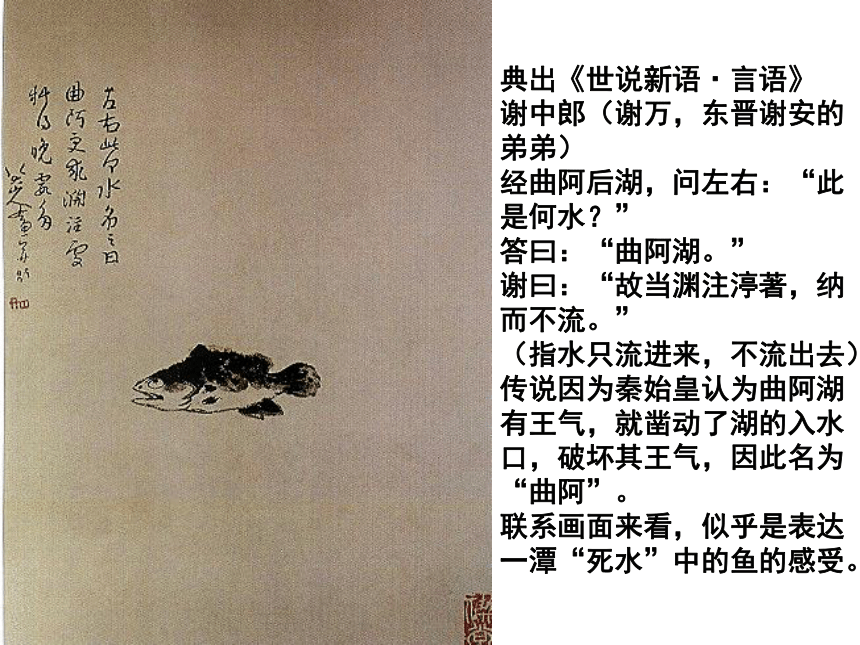 左右此何水名之曰
曲阿更求淵注處
料得晚霞多
八大山人畫并題
典出《世说新语·言语》
谢中郎（谢万，东晋谢安的
弟弟）
经曲阿后湖，问左右：“此
是何水？”
答曰：“曲阿湖。”
谢曰：“故当渊注渟著，纳
而不流。”
（指水只流进来，不流出去）
传说因为秦始皇认为曲阿湖
有王气，就凿动了湖的入水
口，破坏其王气，因此名为
“曲阿”。
联系画面来看，似乎是表达
一潭“死水”中的鱼的感受。